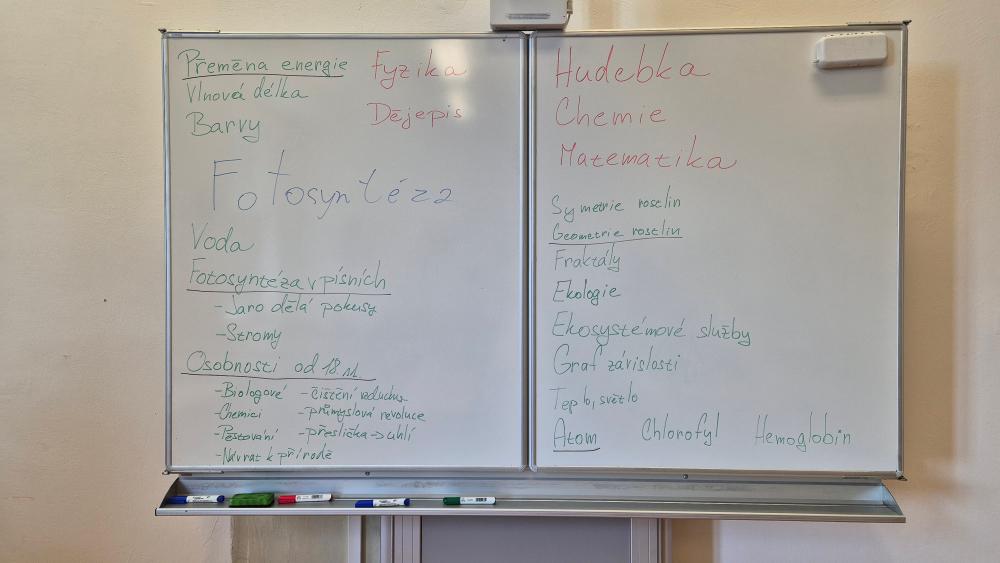 Přeměna energie
Fyzika
Vlnová délka
Dějepis
Barvy
Fotosyntéza
Voda
Fotosyntéza v písních
- Jaro dělá pokusy
- Stromy
Osobnosti od 18.st.
- Biologové
- čištění vzduchu
- Chemici
- průmyslová revoluce
- Pěstování
- přeslička -> uhlí
- Návrat k přírodě
Hudebka
Chemie
Matematika
Symetrie rostlin
Geometrie rostlin
Fraktály
Ekologie
Ekosystémové služby
Graf závislosti
Teplo, světlo
Atom
Chlorofyl
Hemoglobin